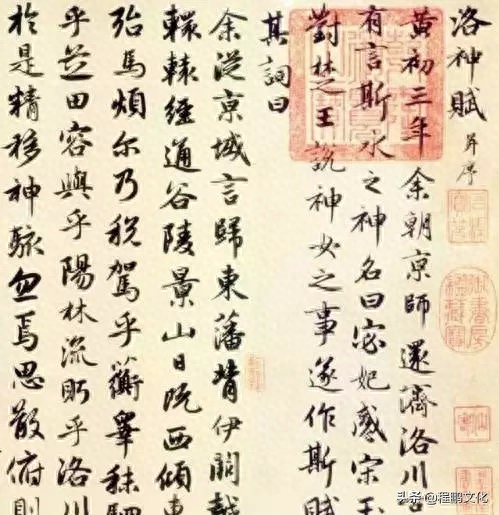 洛神賦 并序
黄初三年余朝京師還濟洛川古
有言斯水之神名曰宓妃感宋玉
對楚王說神女之事遂作斯賦
其詞曰
余從京域言歸東藩背伊闕越
轘轅經通谷陵景山日既西傾車
殆馬煩尔乃税駕乎蘅皋秣駟
乎芝田容與乎陽林流眄乎洛川
於是精移神駭忽焉思散俯則
头条 @程鹏文化